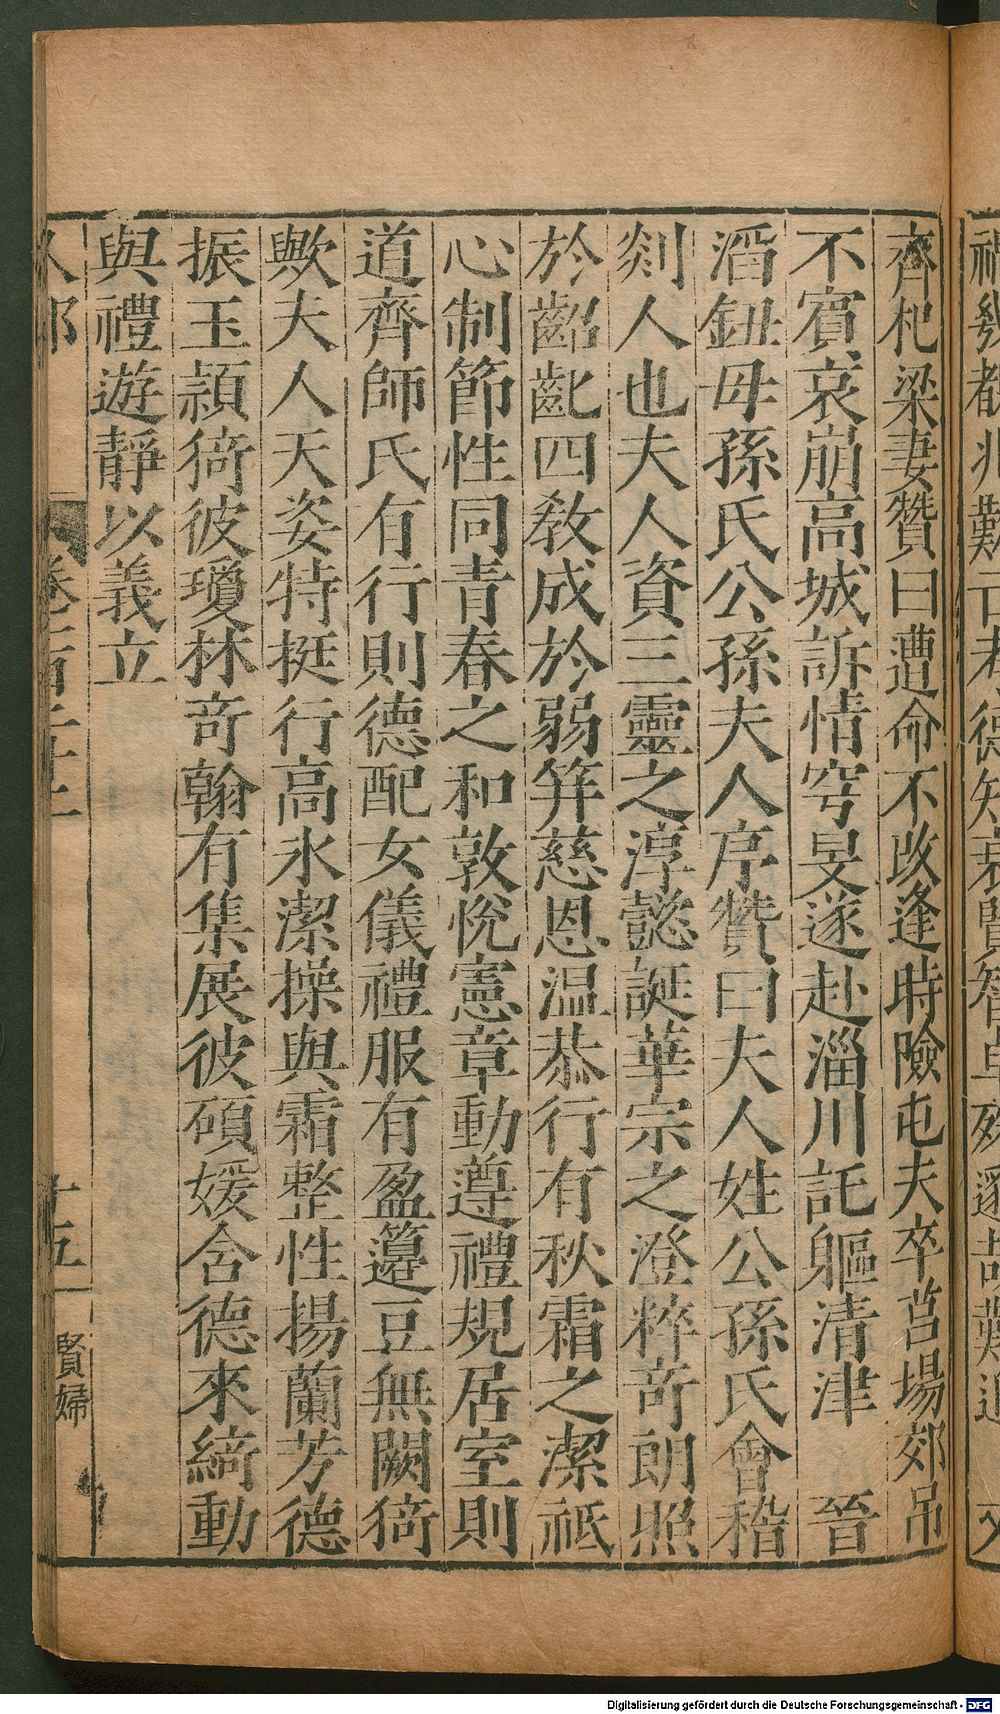 齊杞梁妻贊曰遭命不改逢時險屯夫卒莒場郊吊
不賓哀崩高城訴情穹旻遂赴淄川託軀清津　晉
滔鈕母孫氏公孫夫人序贊曰夫人姓公孫氏會稽
剡人也夫人資三靈之淳懿誕華宗之澄粹竒朗照
於齠齔四教成於弱笄慈恩温恭行有秋霜之潔祗
心制節性同青春之和敦悅憲章動遵禮規居室則
道齊師氏有行則德配女儀禮服有盈籩豆無闕猗
歟夫人天姿特挺行高氷潔操與霜整性揚蘭芳德
振玉頴猗彼瓊林竒翰有集展彼碩媛含德來綺動
與禮遊靜以義立
人部
十五
賢婦
Digitalisierung gefördert durch die Deutsche Forschungsgemeinschaft - DFG